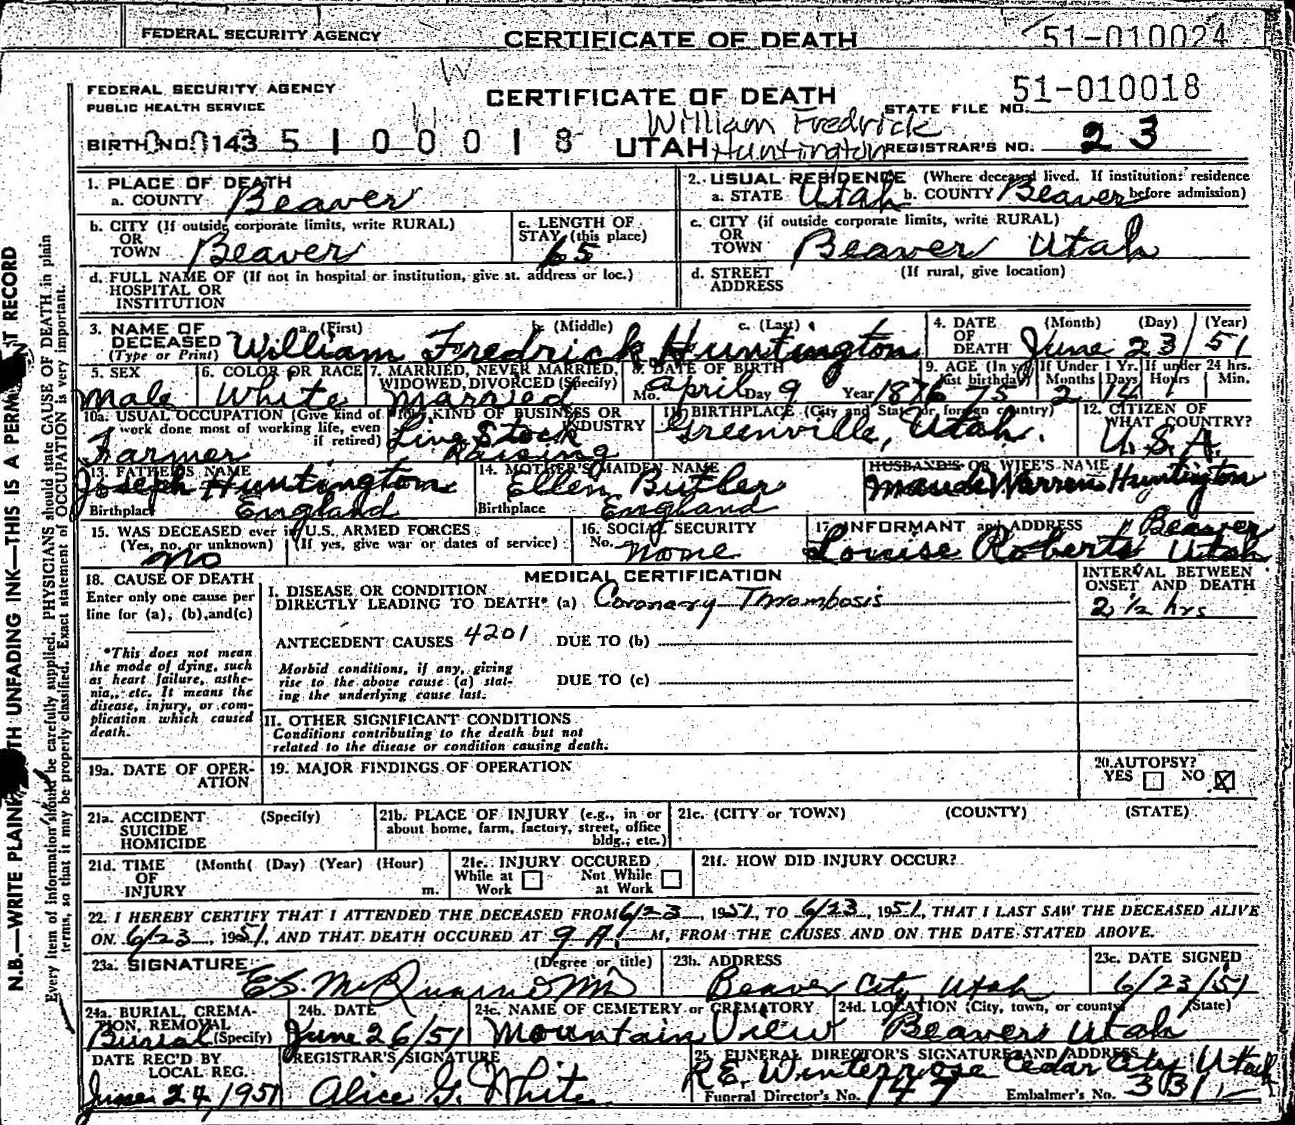 FEDERAL SECURITY AGENCY CERTIFICATE OF DEATH 51-010024
W
FEDERAL SECURITY AGENCY
PUBLIC HEALTH SERVICE
CERTIFICATE OF DEATH
STATE FILE NO. 51-010018
BIRTH NO. 143 5 1 0 0 0 1 8 UTAH William Fredrick Huntington REGISTRAR'S NO. 23
1. PLACE OF DEATH
a. COUNTY Beaver
2. USUAL RESIDENCE (Where deceased lived. If institution: residence before admission)
a. STATE Utah b. COUNTY Beaver
b. CITY (If outside corporate limits, write RURAL)
OR
TOWN Beaver
c. LENGTH OF
STAY (this place)
65
c. CITY (if outside corporate limits, write RURAL)
OR
TOWN Beaver Utah
d. FULL NAME OF (If not in hospital or institution, give st. address or loc.)
HOSPITAL OR
INSTITUTION
d. STREET
ADDRESS
(If rural, give location)
3. NAME OF
DECEASED
(Type or Print)
a. (First) b. (Middle) c. (Last)
William Fredrick Huntington
4. DATE
OF
DEATH
(Month) (Day) (Year)
June 23 51
5. SEX
Male
6. COLOR OR RACE
White
7. MARRIED, NEVER MARRIED,
WIDOWED, DIVORCED (Specify)
Married
8. DATE OF BIRTH
Mo. April Day 9 Year 1876
9. AGE (In yrs last birthday) If Under 1 Yr. If under 24 hrs.
Months Days Hours Min.
75 2 14
10a. USUAL OCCUPATION (Give kind of
work done most of working life, even
if retired)
Farmer
10b. KIND OF BUSINESS OR
INDUSTRY
Live Stock
Raising
11. BIRTHPLACE (City and State or foreign country)
Greenville, Utah.
12. CITIZEN OF
WHAT COUNTRY?
U.S.A.
13. FATHER'S NAME
Joseph Huntington
Birthplace England
14. MOTHER'S MAIDEN NAME
Ellen Butler
Birthplace England
HUSBAND'S OR WIFE'S NAME
Maude Warren Huntington
15. WAS DECEASED ever in U.S. ARMED FORCES
(Yes, no, or unknown) (If yes, give war or dates of service)
No
16. SOCIAL SECURITY
No. None
17. INFORMANT and ADDRESS
Louise Roberts Beaver Utah
18. CAUSE OF DEATH
Enter only one cause per
line for (a), (b), and (c)
*This does not mean
the mode of dying, such
as heart failure, asthe-
nia, etc. It means the
disease, injury, or com-
plication which caused
death.
MEDICAL CERTIFICATION
I. DISEASE OR CONDITION
DIRECTLY LEADING TO DEATH* (a) Coronary Thrombosis
ANTECEDENT CAUSES 4201 DUE TO (b)
Morbid conditions, if any, giving
rise to the above cause (a) stat-
ing the underlying cause last.
DUE TO (c)
II. OTHER SIGNIFICANT CONDITIONS
Conditions contributing to the death but not
related to the disease or condition causing death.
INTERVAL BETWEEN
ONSET AND DEATH
2 1/2 hrs
19a. DATE OF OPER-
ATION
19. MAJOR FINDINGS OF OPERATION
20. AUTOPSY?
YES NO X
21a. ACCIDENT (Specify)
SUICIDE
HOMICIDE
21b. PLACE OF INJURY (e.g., in or
about home, farm, factory, street, office
bldg., etc.)
21c. (CITY or TOWN) (COUNTY) (STATE)
21d. TIME (Month( (Day) (Year) (Hour)
OF
INJURY m.
21e. INJURY OCCURED
While at Work Not While at Work
21f. HOW DID INJURY OCCUR?
22. I HEREBY CERTIFY THAT I ATTENDED THE DECEASED FROM 6/23, 1951, TO 6/23, 1951, THAT I LAST SAW THE DECEASED ALIVE
ON 6/23, 1951, AND THAT DEATH OCCURED AT 9 A. M., FROM THE CAUSES AND ON THE DATE STATED ABOVE.
23a. SIGNATURE (Degree or title)
23b. ADDRESS
Beaver City Utah
23c. DATE SIGNED
6/23/51
24a. BURIAL, CREMA-
TION, REMOVAL
(Specify)
Burial
24b. DATE
June 26/51
24c. NAME OF CEMETERY or CREMATORY
Mountain View
24d. LOCATION (City, town, or county) (State)
Beaver Utah
DATE REC'D BY
LOCAL REG.
June 24, 1951
REGISTRAR'S SIGNATURE
Alice G. White
25. FUNERAL DIRECTOR'S SIGNATURE AND ADDRESS
R.E. Winterrose Cedar City Utah
Funeral Director's No. 147 Embalmer's No. 331
N.B.—WRITE PLAIN UNFADING INK—THIS IS A RECORD
Every item of information should be carefully supplied. PHYSICIANS should state CAUSE OF DEATH in plain
terms, so that it may be properly classified. Exact statement of OCCUPATION is very important.